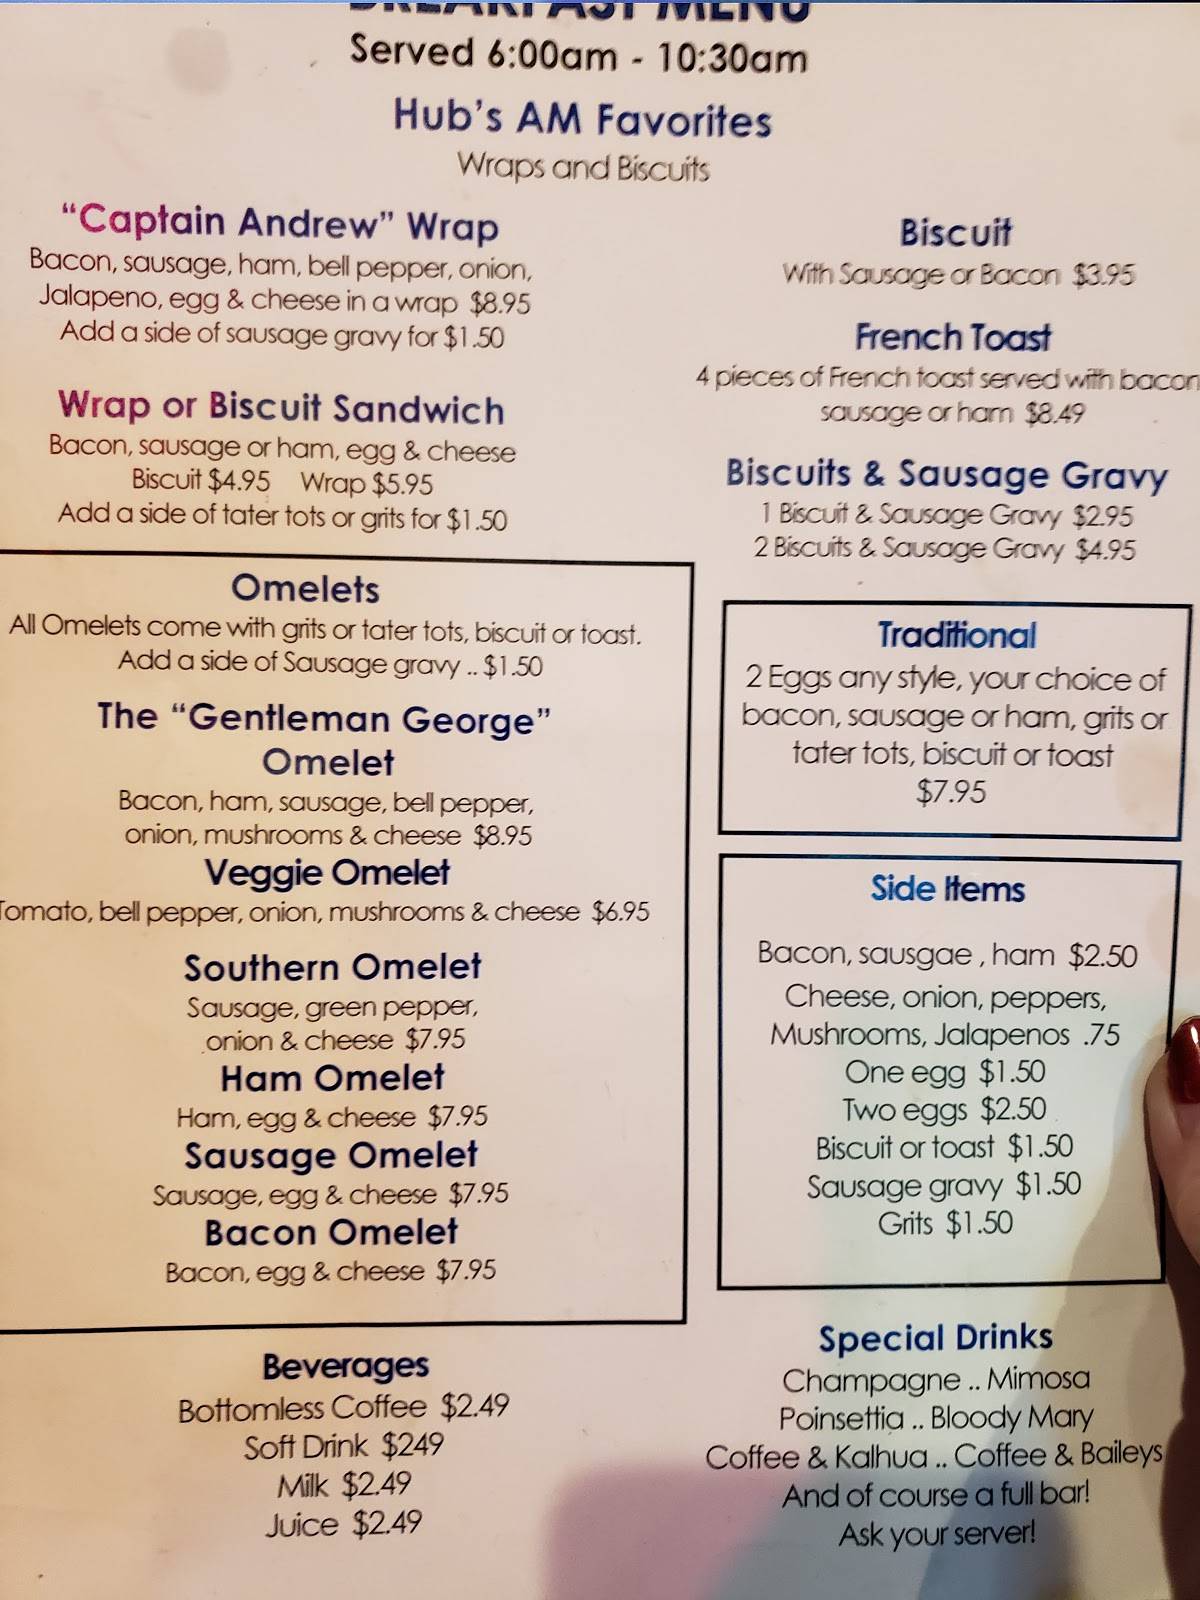 BREAKFAST MENU
Served 6:00am - 10:30am
Hub's AM Favorites
Wraps and Biscuits
"Captain Andrew" Wrap
Bacon, sausage, ham, bell pepper, onion,
Jalapeno, egg & cheese in a wrap $8.95
Add a side of sausage gravy for $1.50
Wrap or Biscuit Sandwich
Bacon, sausage or ham, egg & cheese
Biscuit $4.95 Wrap $5.95
Add a side of tater tots or grits for $1.50
Biscuit
With Sausage or Bacon $3.95
French Toast
4 pieces of French toast served with bacon
sausage or ham $8.49
Biscuits & Sausage Gravy
1 Biscuit & Sausage Gravy $2.95
2 Biscuits & Sausage Gravy $4.95
Omelets
All Omelets come with grits or tater tots, biscuit or toast.
Add a side of Sausage gravy .. $1.50
The "Gentleman George"
Omelet
Bacon, ham, sausage, bell pepper,
onion, mushrooms & cheese $8.95
Veggie Omelet
Tomato, bell pepper, onion, mushrooms & cheese $6.95
Southern Omelet
Sausage, green pepper,
onion & cheese $7.95
Ham Omelet
Ham, egg & cheese $7.95
Sausage Omelet
Sausage, egg & cheese $7.95
Bacon Omelet
Bacon, egg & cheese $7.95
Traditional
2 Eggs any style, your choice of
bacon, sausage or ham, grits or
tater tots, biscuit or toast
$7.95
Side Items
Bacon, sausgae , ham $2.50
Cheese, onion, peppers,
Mushrooms, Jalapenos .75
One egg $1.50
Two eggs $2.50
Biscuit or toast $1.50
Sausage gravy $1.50
Grits $1.50
Beverages
Bottomless Coffee $2.49
Soft Drink $249
Milk $2.49
Juice $2.49
Special Drinks
Champagne .. Mimosa
Poinsettia .. Bloody Mary
Coffee & Kalhua .. Coffee & Baileys
And of course a full bar!
Ask your server!